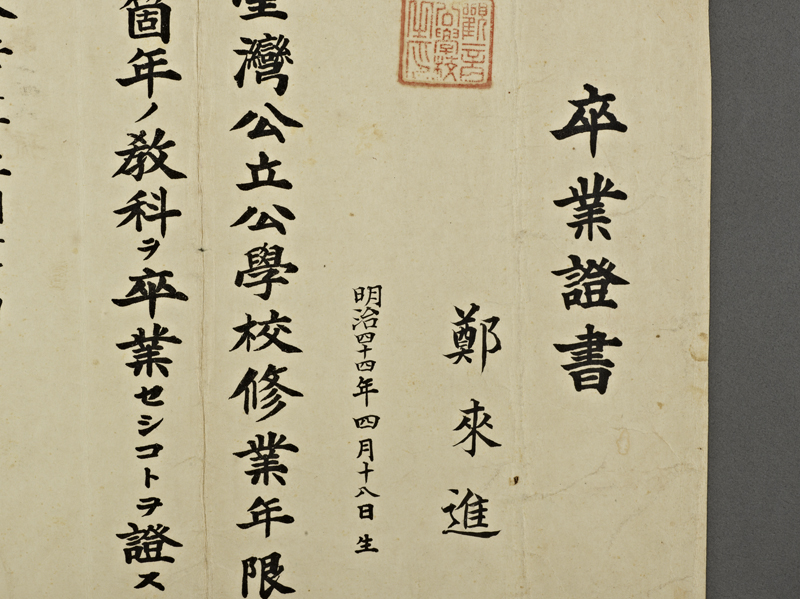 卒業證書
鄭來進
明治四十四年四月十八日生
臺灣公立公學校修業年限
箇年ノ教科ヲ卒業セシコトヲ證ス